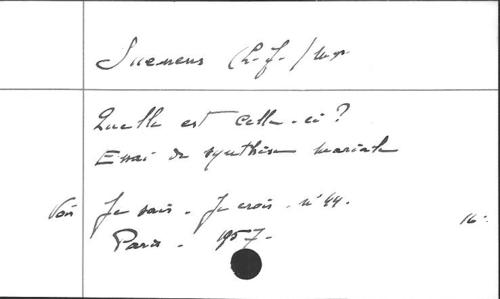 Suenens (L.-J.) Mgr
Quelle est celle-ci ?
Essai de synthèse mariale
Voir Je sais - Je crois - n° 44.
Paris - 1957 -
16°